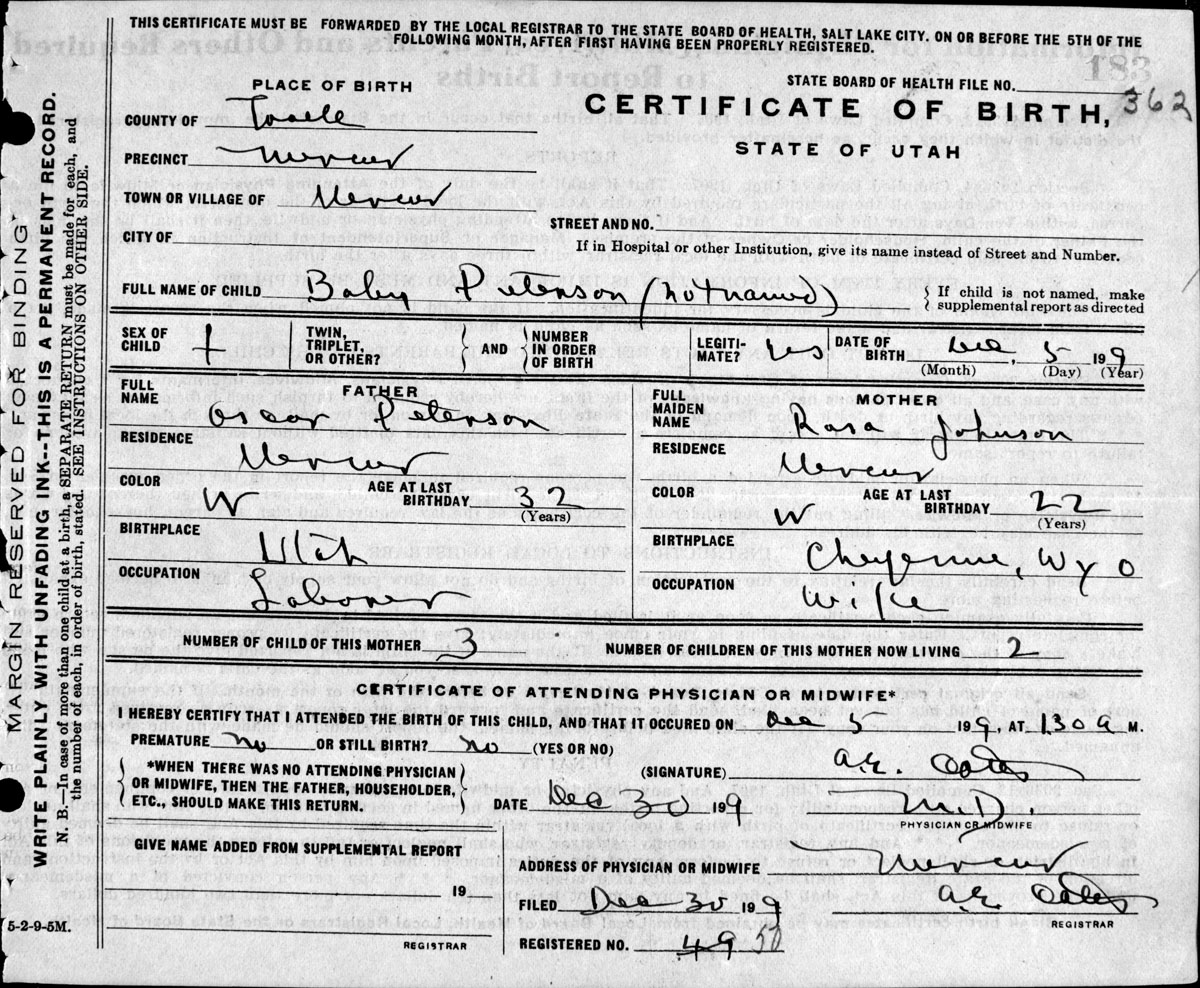 THIS CERTIFICATE MUST BE FORWARDED BY THE LOCAL REGISTRAR TO THE STATE BOARD OF HEALTH, SALT LAKE CITY, ON OR BEFORE THE 5TH OF THE
FOLLOWING MONTH, AFTER FIRST HAVING BEEN PROPERLY REGISTERED.
MARGIN RESERVED FOR BINDING
WRITE PLAINLY WITH UNFADING INK--THIS IS A PERMANENT RECORD.
N. B.—In case of more than one child at a birth, a SEPARATE RETURN must be made for each, and
the number of each, in order of birth, stated. SEE INSTRUCTIONS ON OTHER SIDE.
5-2-9-5M.
PLACE OF BIRTH
STATE BOARD OF HEALTH FILE NO.
183
362
COUNTY OF Tooele
CERTIFICATE OF BIRTH,
STATE OF UTAH
PRECINCT Mercur
TOWN OR VILLAGE OF Mercur
STREET AND NO.
CITY OF
If in Hospital or other Institution, give its name instead of Street and Number.
FULL NAME OF CHILD Baby Peterson (not named)
{ If child is not named, make
supplemental report as directed
SEX OF CHILD f
TWIN, TRIPLET, OR OTHER?
AND
NUMBER IN ORDER OF BIRTH
LEGITI-MATE? Yes
DATE OF BIRTH Dec, 5 1909
(Month) (Day) (Year)
FATHER
FULL NAME Oscar Peterson
RESIDENCE Mercur
COLOR W
AGE AT LAST BIRTHDAY 32
(Years)
BIRTHPLACE Utah
OCCUPATION Laborer
MOTHER
FULL MAIDEN NAME Rosa Johnson
RESIDENCE Mercur
COLOR W
AGE AT LAST BIRTHDAY 22
(Years)
BIRTHPLACE Cheyenne, Wyo
OCCUPATION Wife
NUMBER OF CHILD OF THIS MOTHER 3
NUMBER OF CHILDREN OF THIS MOTHER NOW LIVING 2
CERTIFICATE OF ATTENDING PHYSICIAN OR MIDWIFE*
I HEREBY CERTIFY THAT I ATTENDED THE BIRTH OF THIS CHILD, AND THAT IT OCCURED ON Dec 5 199, AT 130 a M.
PREMATURE no OR STILL BIRTH? no (YES OR NO)
{ *WHEN THERE WAS NO ATTENDING PHYSICIAN
OR MIDWIFE, THEN THE FATHER, HOUSEHOLDER,
ETC., SHOULD MAKE THIS RETURN. }
(SIGNATURE) A.E. Oates
DATE Dec 30 199
M.D.
PHYSICIAN OR MIDWIFE
GIVE NAME ADDED FROM SUPPLEMENTAL REPORT
19
REGISTRAR
ADDRESS OF PHYSICIAN OR MIDWIFE Mercur
FILED Dec 30 199 A.E. Oates
REGISTRAR
REGISTERED NO. 49 50